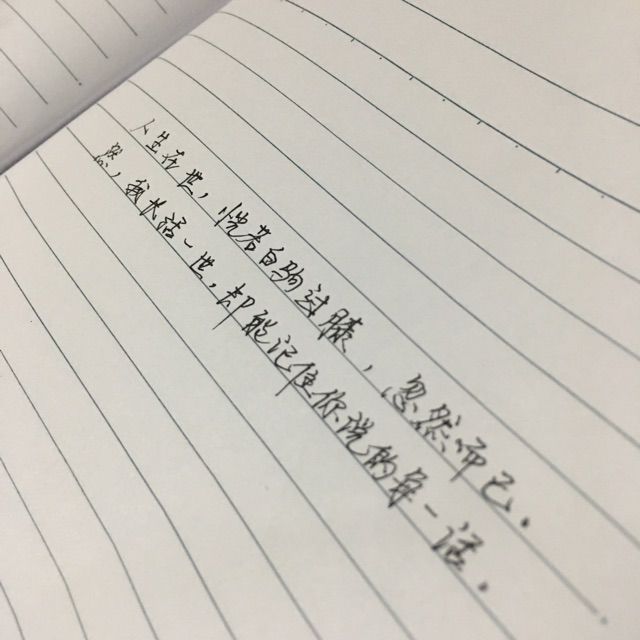 人生在世，恍若白驹过膝，忽然而已。
然，我长活一世，却能记住你说的每一话。